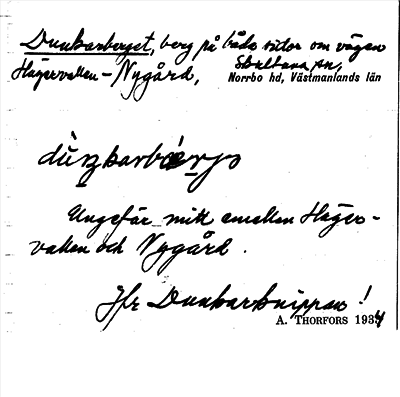 Dunkarberget, berg på båda sidor om vägen
Hagervallen - Nygård, Skultuna sn,
Norrbo hd, Västmanlands län
Ungefär mitt emellan Hager-
vallen och Nygård.
Jfr Dunkarknippan!
A. THORFORS 1934